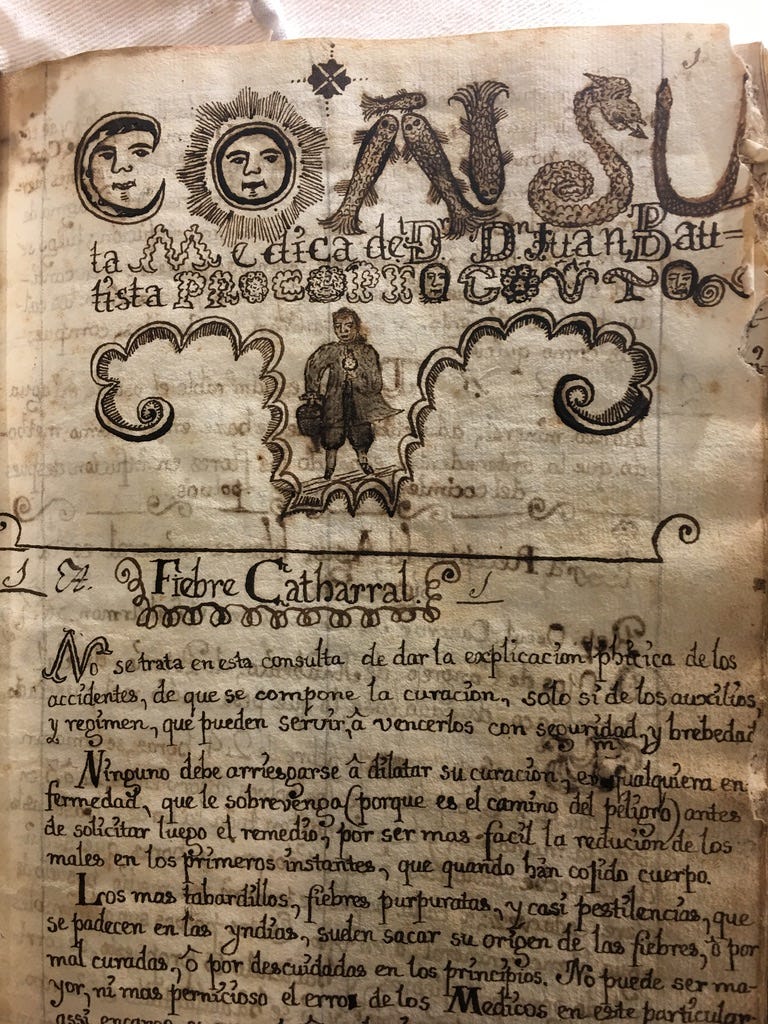 1
CONSU
ta Medica del Dr. Dn Juan Baut=
tista
1 Et. Fiebre Catharral. 1
No se trata en esta consulta de dar la explicacion phicica de los
accidentes, de que se compone la curacion, solo si de los auxilios,
y regimen, que pueden servir, â vencerlos con seguridad, y brebedad
Ninguno debe arriesgarse â dilatar su curacion, en qualquiera en
fermedad, que le sobrevenga (porque es el camino del peligro) antes
de solicitar luego el remedio, por ser mas facil la reducion de los
males en los primeros instantes, que quando hàn cogido cuerpo.
Los mas tabardillos, fiebres purpuratas, y casi pestilencias, que
se padecen en las yndias, suelen sacar su origen de las fiebres, ô por
mal curadas, ô por descuidadas en los principios. No puede ser ma-
yor, ni mas pernicioso el error de los Medicos en este particular